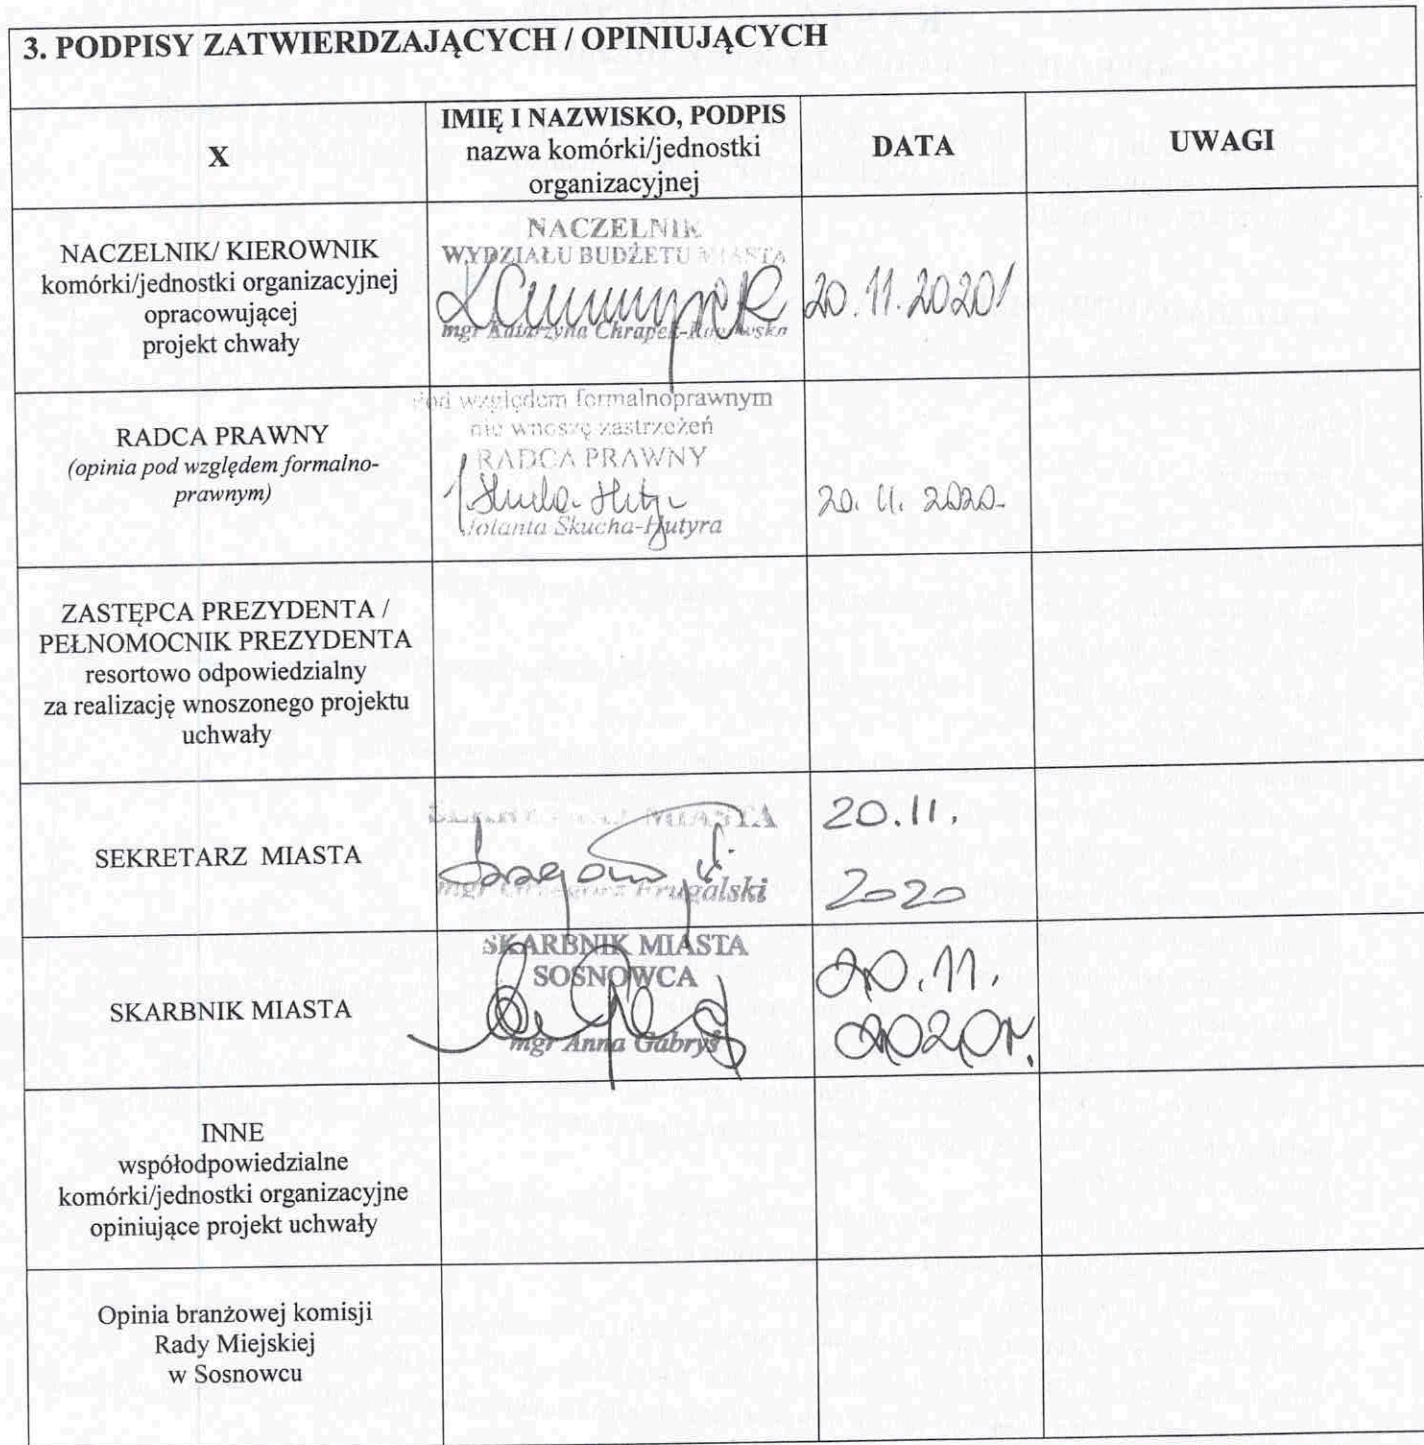 3. PODPISY ZATWIERDZAJĄCYCH / OPINIUJĄCYCH
X
IMIĘ I NAZWISKO, PODPIS
nazwa komórki/jednostki
organizacyjnej
DATA
UWAGI
NACZELNIK/ KIEROWNIK
komórki/jednostki organizacyjnej
opracowującej
projekt chwały
NACZELNIK
WYDZIAŁU BUDŻETU MIASTA
mgr Katarzyna Chrapek-
20.11.2020
RADCA PRAWNY
(opinia pod względem formalno-
prawnym)
Pod względem formalnoprawnym
nie wnoszę zastrzeżeń
RADCA PRAWNY
Jolanta Skucha-Hutyra
20. 11. 2020.
ZASTĘPCA PREZYDENTA /
PEŁNOMOCNIK PREZYDENTA
resortowo odpowiedzialny
za realizację wnoszonego projektu
uchwały
SEKRETARZ MIASTA
SEKRETARZ MIASTA
mgr Grzegorz Frugalski
20.11.
2020
SKARBNIK MIASTA
SKARBNIK MIASTA
SOSNOWCA
mgr Anna Gabryś
20.11.
2020r.
INNE
współodpowiedzialne
komórki/jednostki organizacyjne
opiniujące projekt uchwały
Opinia branżowej komisji
Rady Miejskiej
w Sosnowcu